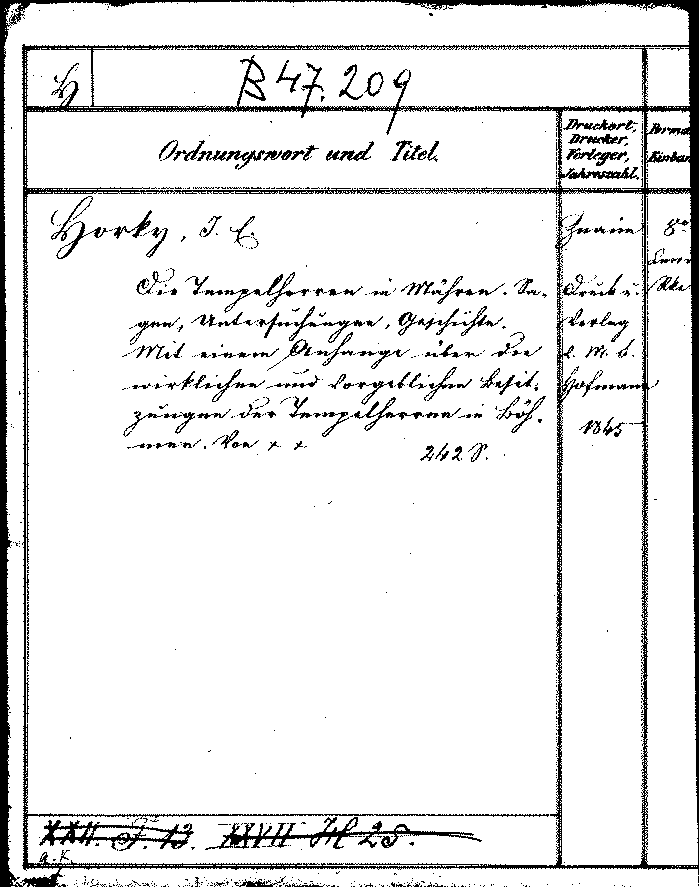 H
B 47.209
Ordnungswort und Titel.
Druckort,
Drucker,
Verleger,
Jahreszahl.
Forma
Einban
Horky, J. E.
Die Tempelherren in Mähren. Sa-
gen, Untersuchungen, Geschichte.
Mit einem Anhange über die
wirklichen und vorgeblichen Besit-
zungen der Tempelherren in Böh-
men. Von + +
242 S.
Znaim
Druck u.
Verlag
v. M. F.
Hofmann
1845
8°
XXII. F. 13. XXVII H 25.